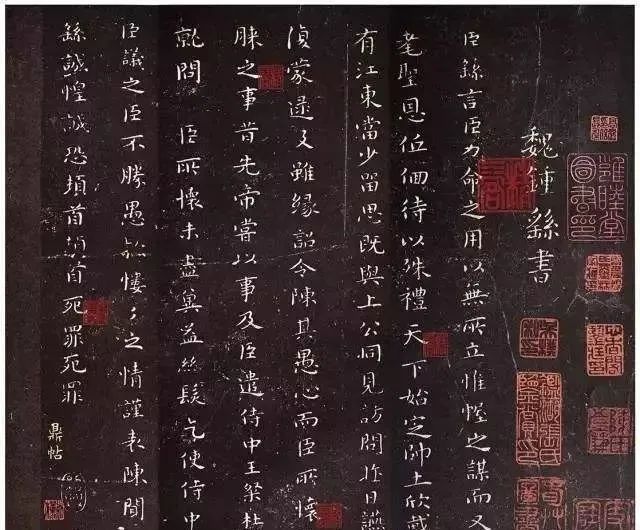 魏鍾繇書
臣繇言臣力命之用以無所立惟幄之謀而又
老聖恩低佪待以殊禮天下始定帥土欣戴
有江東當少留思既與上公同見訪問昨日讌
復蒙逮及雖緣詔令陳其愚心而臣所懷
昧之事昔先帝嘗以事及臣遣侍中王粲杜
就問 臣所懷未盡冀益絲髮乞使侍中
臣議之臣不勝愚款慺々之情謹表陳聞
繇誠惶誠恐頓首頓首死罪死罪
鼎帖